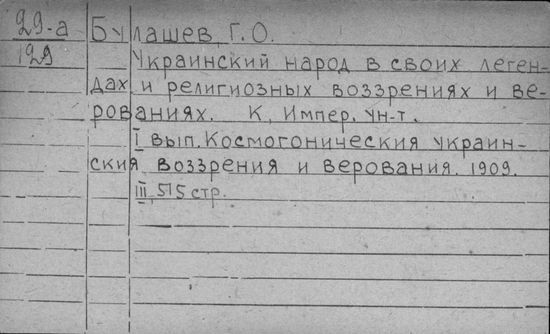 29-а
129
Булашев, Г. О.
Украинский народ в своих леген-
дах и религиозных воззрениях и ве-
рованиях. К, Импер. Ун-т.
I вып. Космогоническия украин-
ския воззрения и верования. 1909.
III, 515 стр.